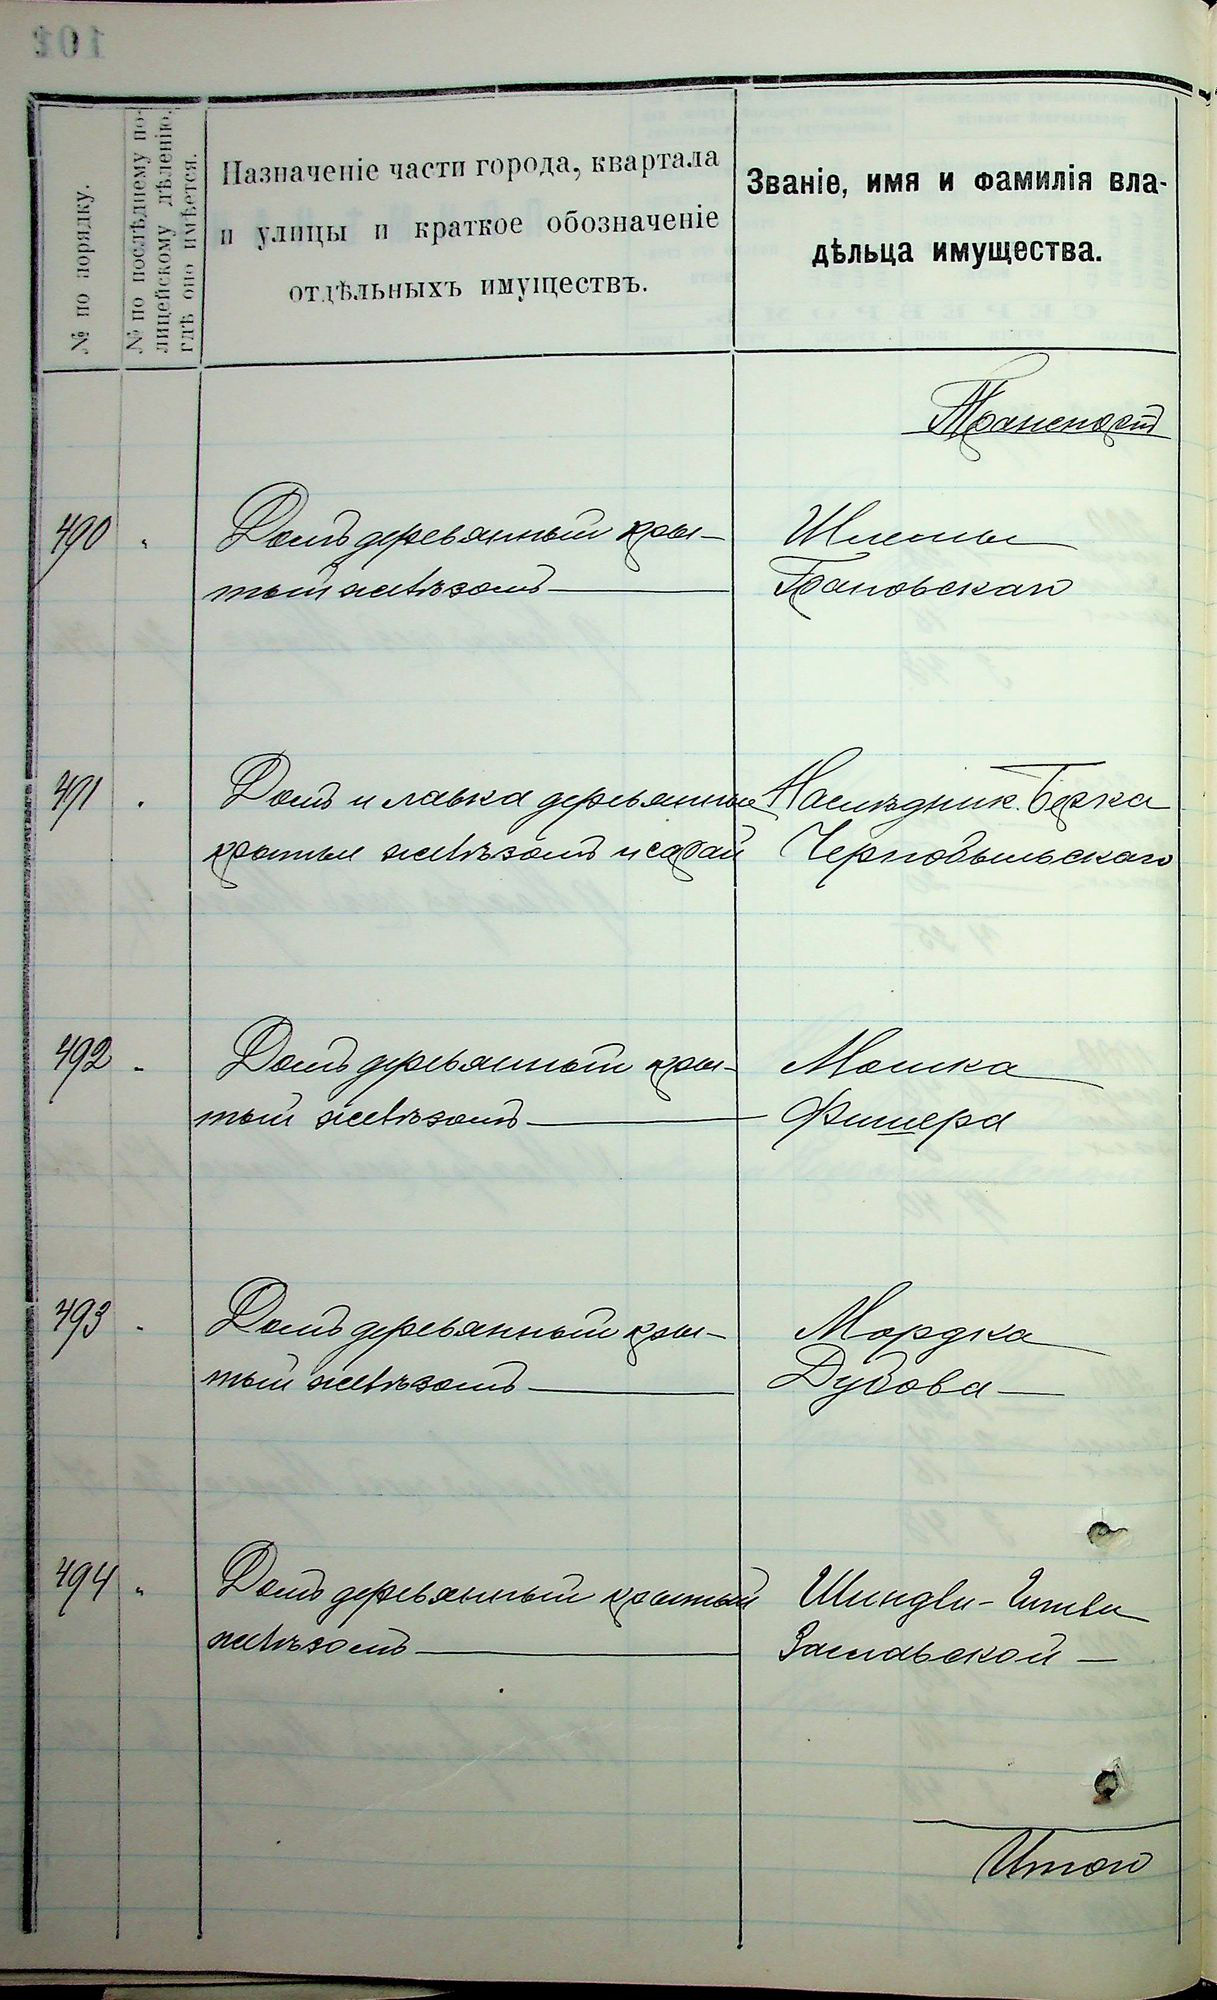 № по порядку.
№ по послѣднему по-
лицейскому дѣленію,
гдѣ оно имѣется.
Назначеніе части города, квартала
и улицы и краткое обозначеніе
отдѣльныхъ имуществъ.
Званіе, имя и фамилія вла-
дѣльца имущества.
Транспортъ
490 " Домъ деревянный кры- Шлемы
тый желѣзомъ Грановскаго
491 " Домъ и лавка деревянные Наслѣдник. Берка
крытые желѣзомъ и сарай Чернобыльскаго
492 " Домъ деревянный кры- Мошка
тый желѣзомъ Фишера
493 " Домъ деревянный кры- Мордка
тый желѣзомъ Дубова
494 " Домъ деревянный крытый Шиндли-Гитли
желѣзомъ Заславской
Итого